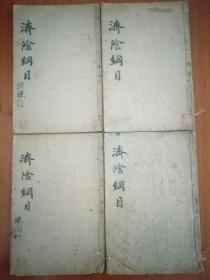 濟陰綱目
濟陰綱目
濟陰綱目
濟陰綱目